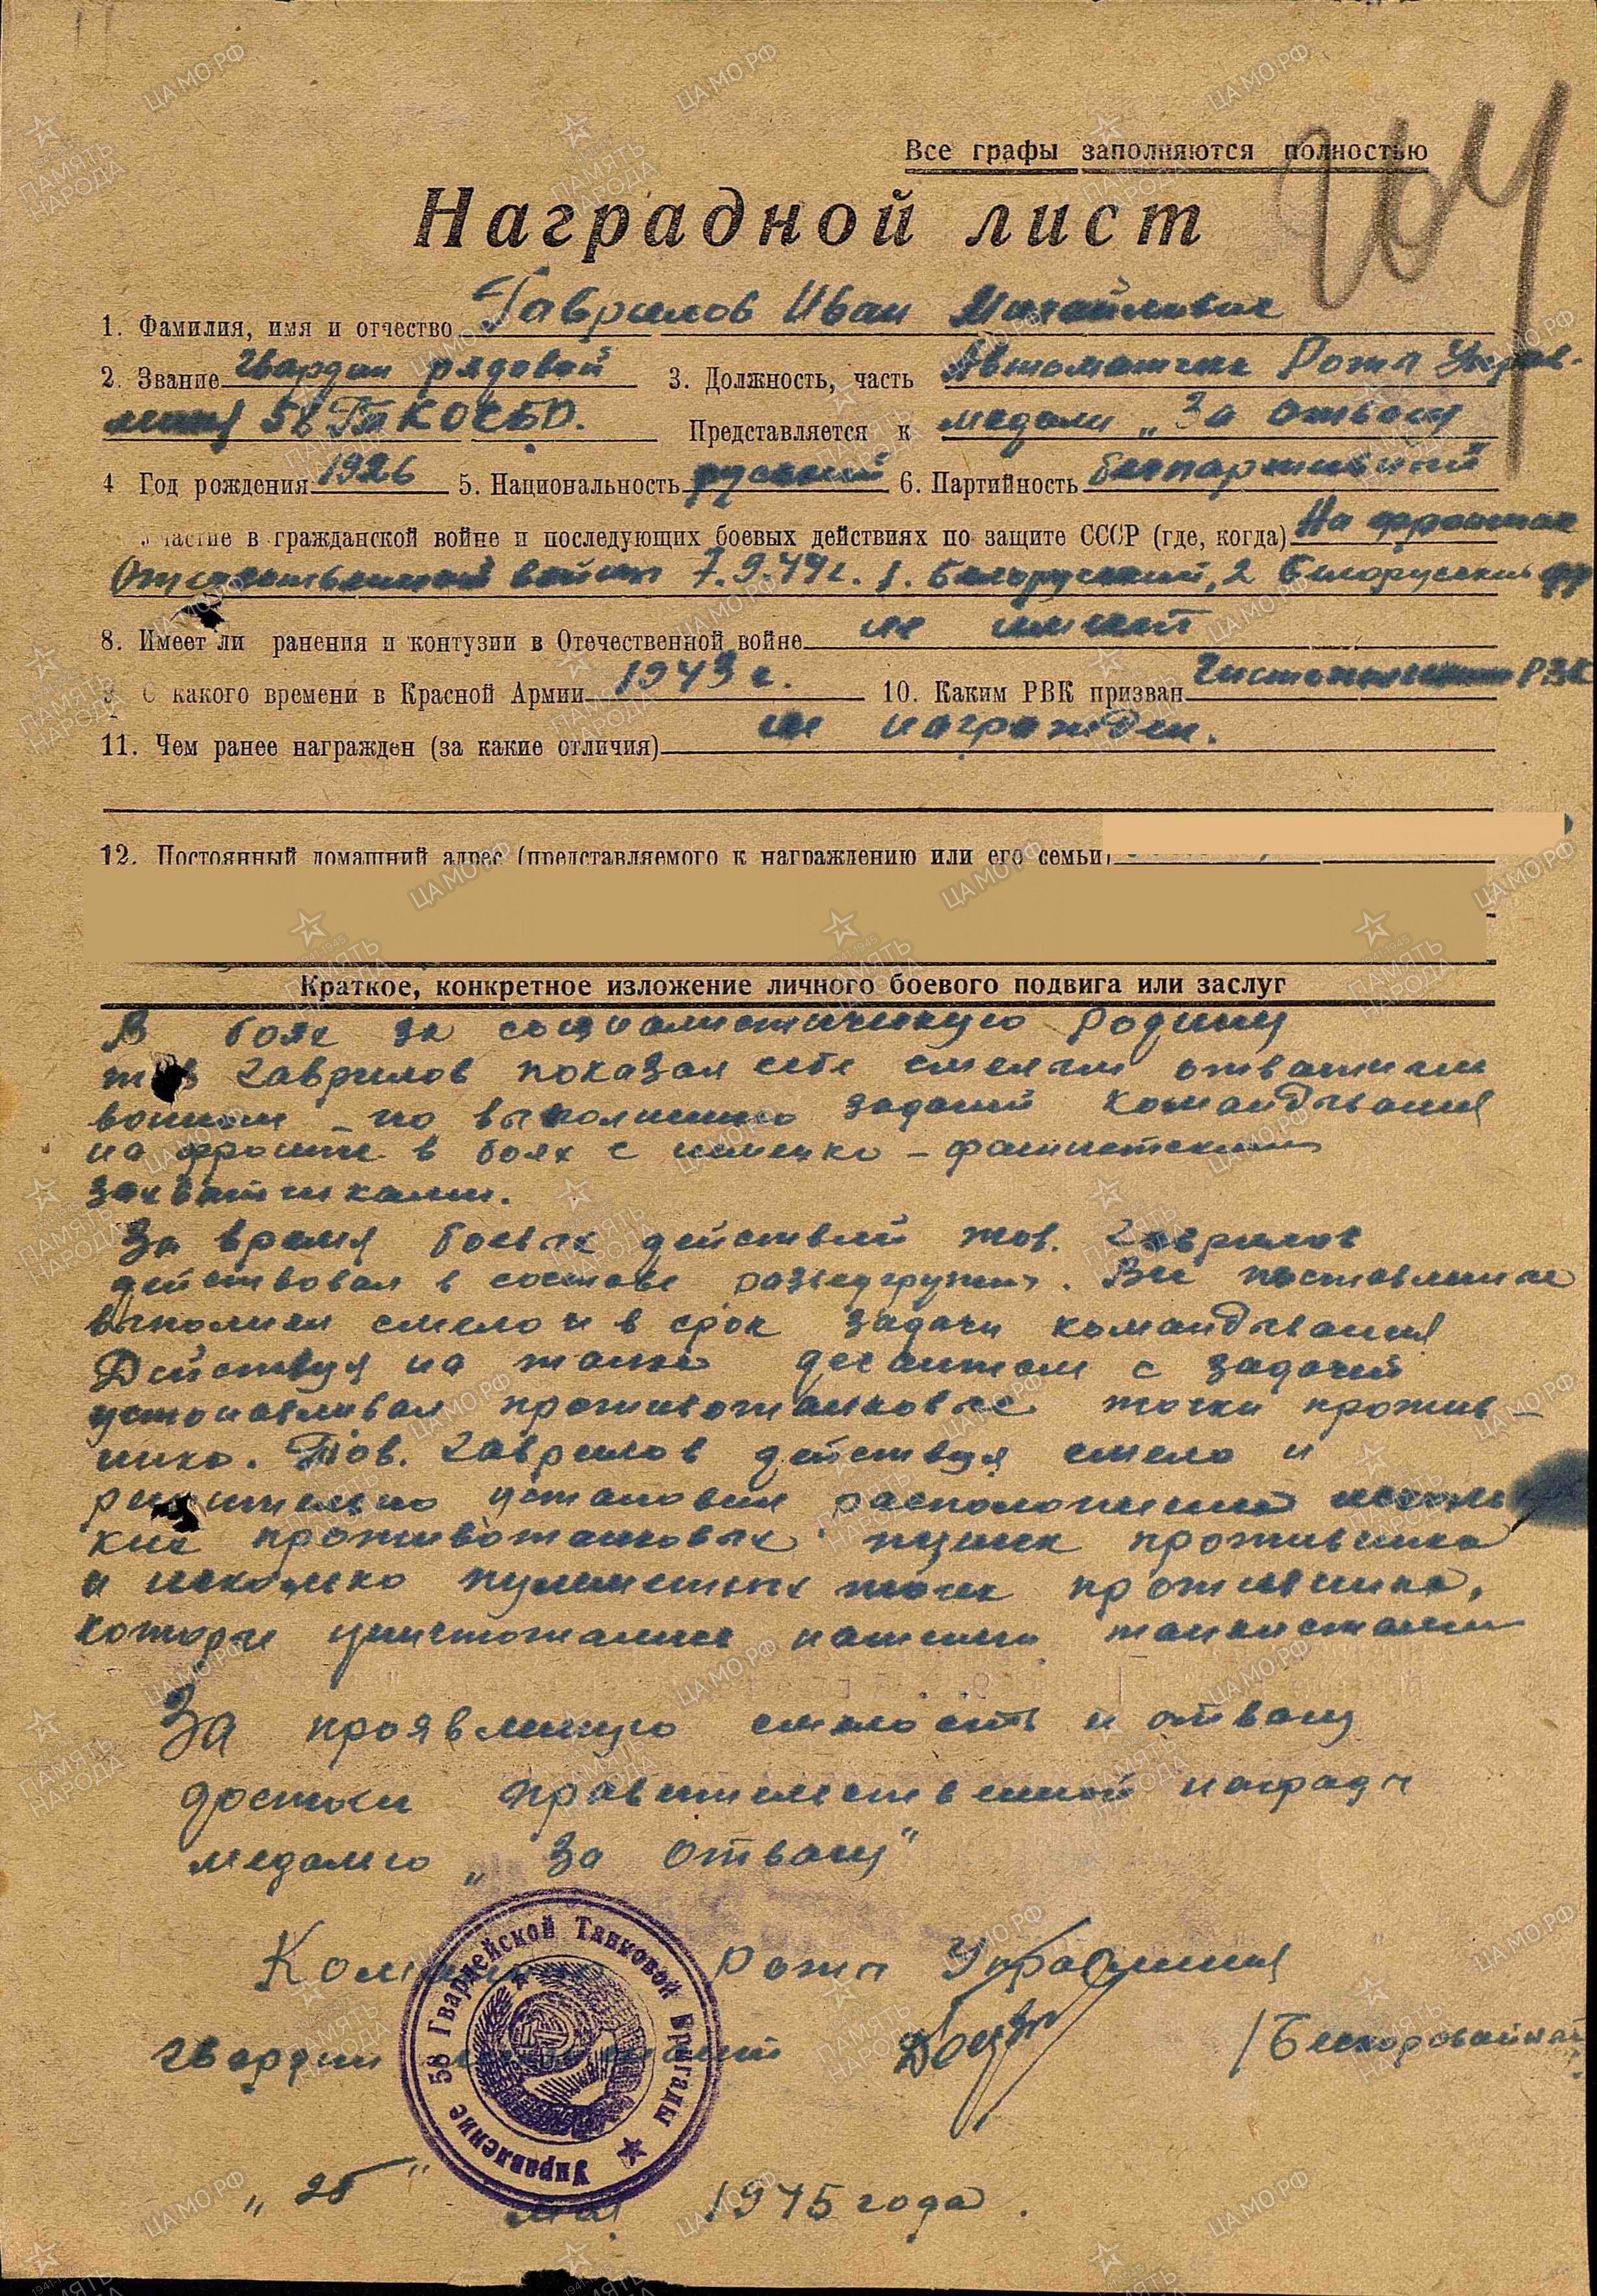 204
Все графы заполняются полностью
Наградной лист
1. Фамилия, имя и отчество Гаврилов Иван Михайлович
2. Звание Гвардии рядовой 3. Должность, часть Автоматчик Рота Управ-
ления 58 Гв ТБ Представляется к медали „За отвагу
4 Год рождения 1926 5. Национальность русский 6. Партийность беспартийный
Участие в гражданской войне и последующих боевых действиях по защите СССР (где, когда) На фронтах
Отечественной войны 7.9.44г. 1. Белорусский, 2 Белорусский фр
8. Имеет ли ранения и контузии в Отечественной войне не имеет
9. С какого времени в Красной Армии 1943 г. 10. Каким РВК призван РВК
11. Чем ранее награжден (за какие отличия) не награжден.
12. Постоянный домашний адрес (представляемого к награждению или его семьи)
Краткое, конкретное изложение личного боевого подвига или заслуг
В боях за социалистическую Родину
тов Гаврилов показал себе смелым отважным
воином – по выполнению заданий командывания
на фронте в боях с немецко – фашистскими
захватчиками.
За время боевых действий тов. Гаврилов
действовал в составе разведгрупы. Все поставленые
выполнял смело и в срок задачи командывания
Действуя на танке десантом с задачей
устонавливал противотанковые точки против–
ника. Тов. Гаврилов действуя смело и
решительно установил расположение несколь
ких противотанковых пушек противника
и несколько пулеметных точек противника,
которые уничтожались нашими танкистами
За проявленную смелость и отвагу
достоин правительственной награды
медалью „За Отвагу"
Командир Роты Управления
гвардии /Бескоровайный
„25" мая 1945 года.
Управление 58 Гвардейской Танковой Бригады
ЦА МО РФ
ПАМЯТЬ НАРОДА